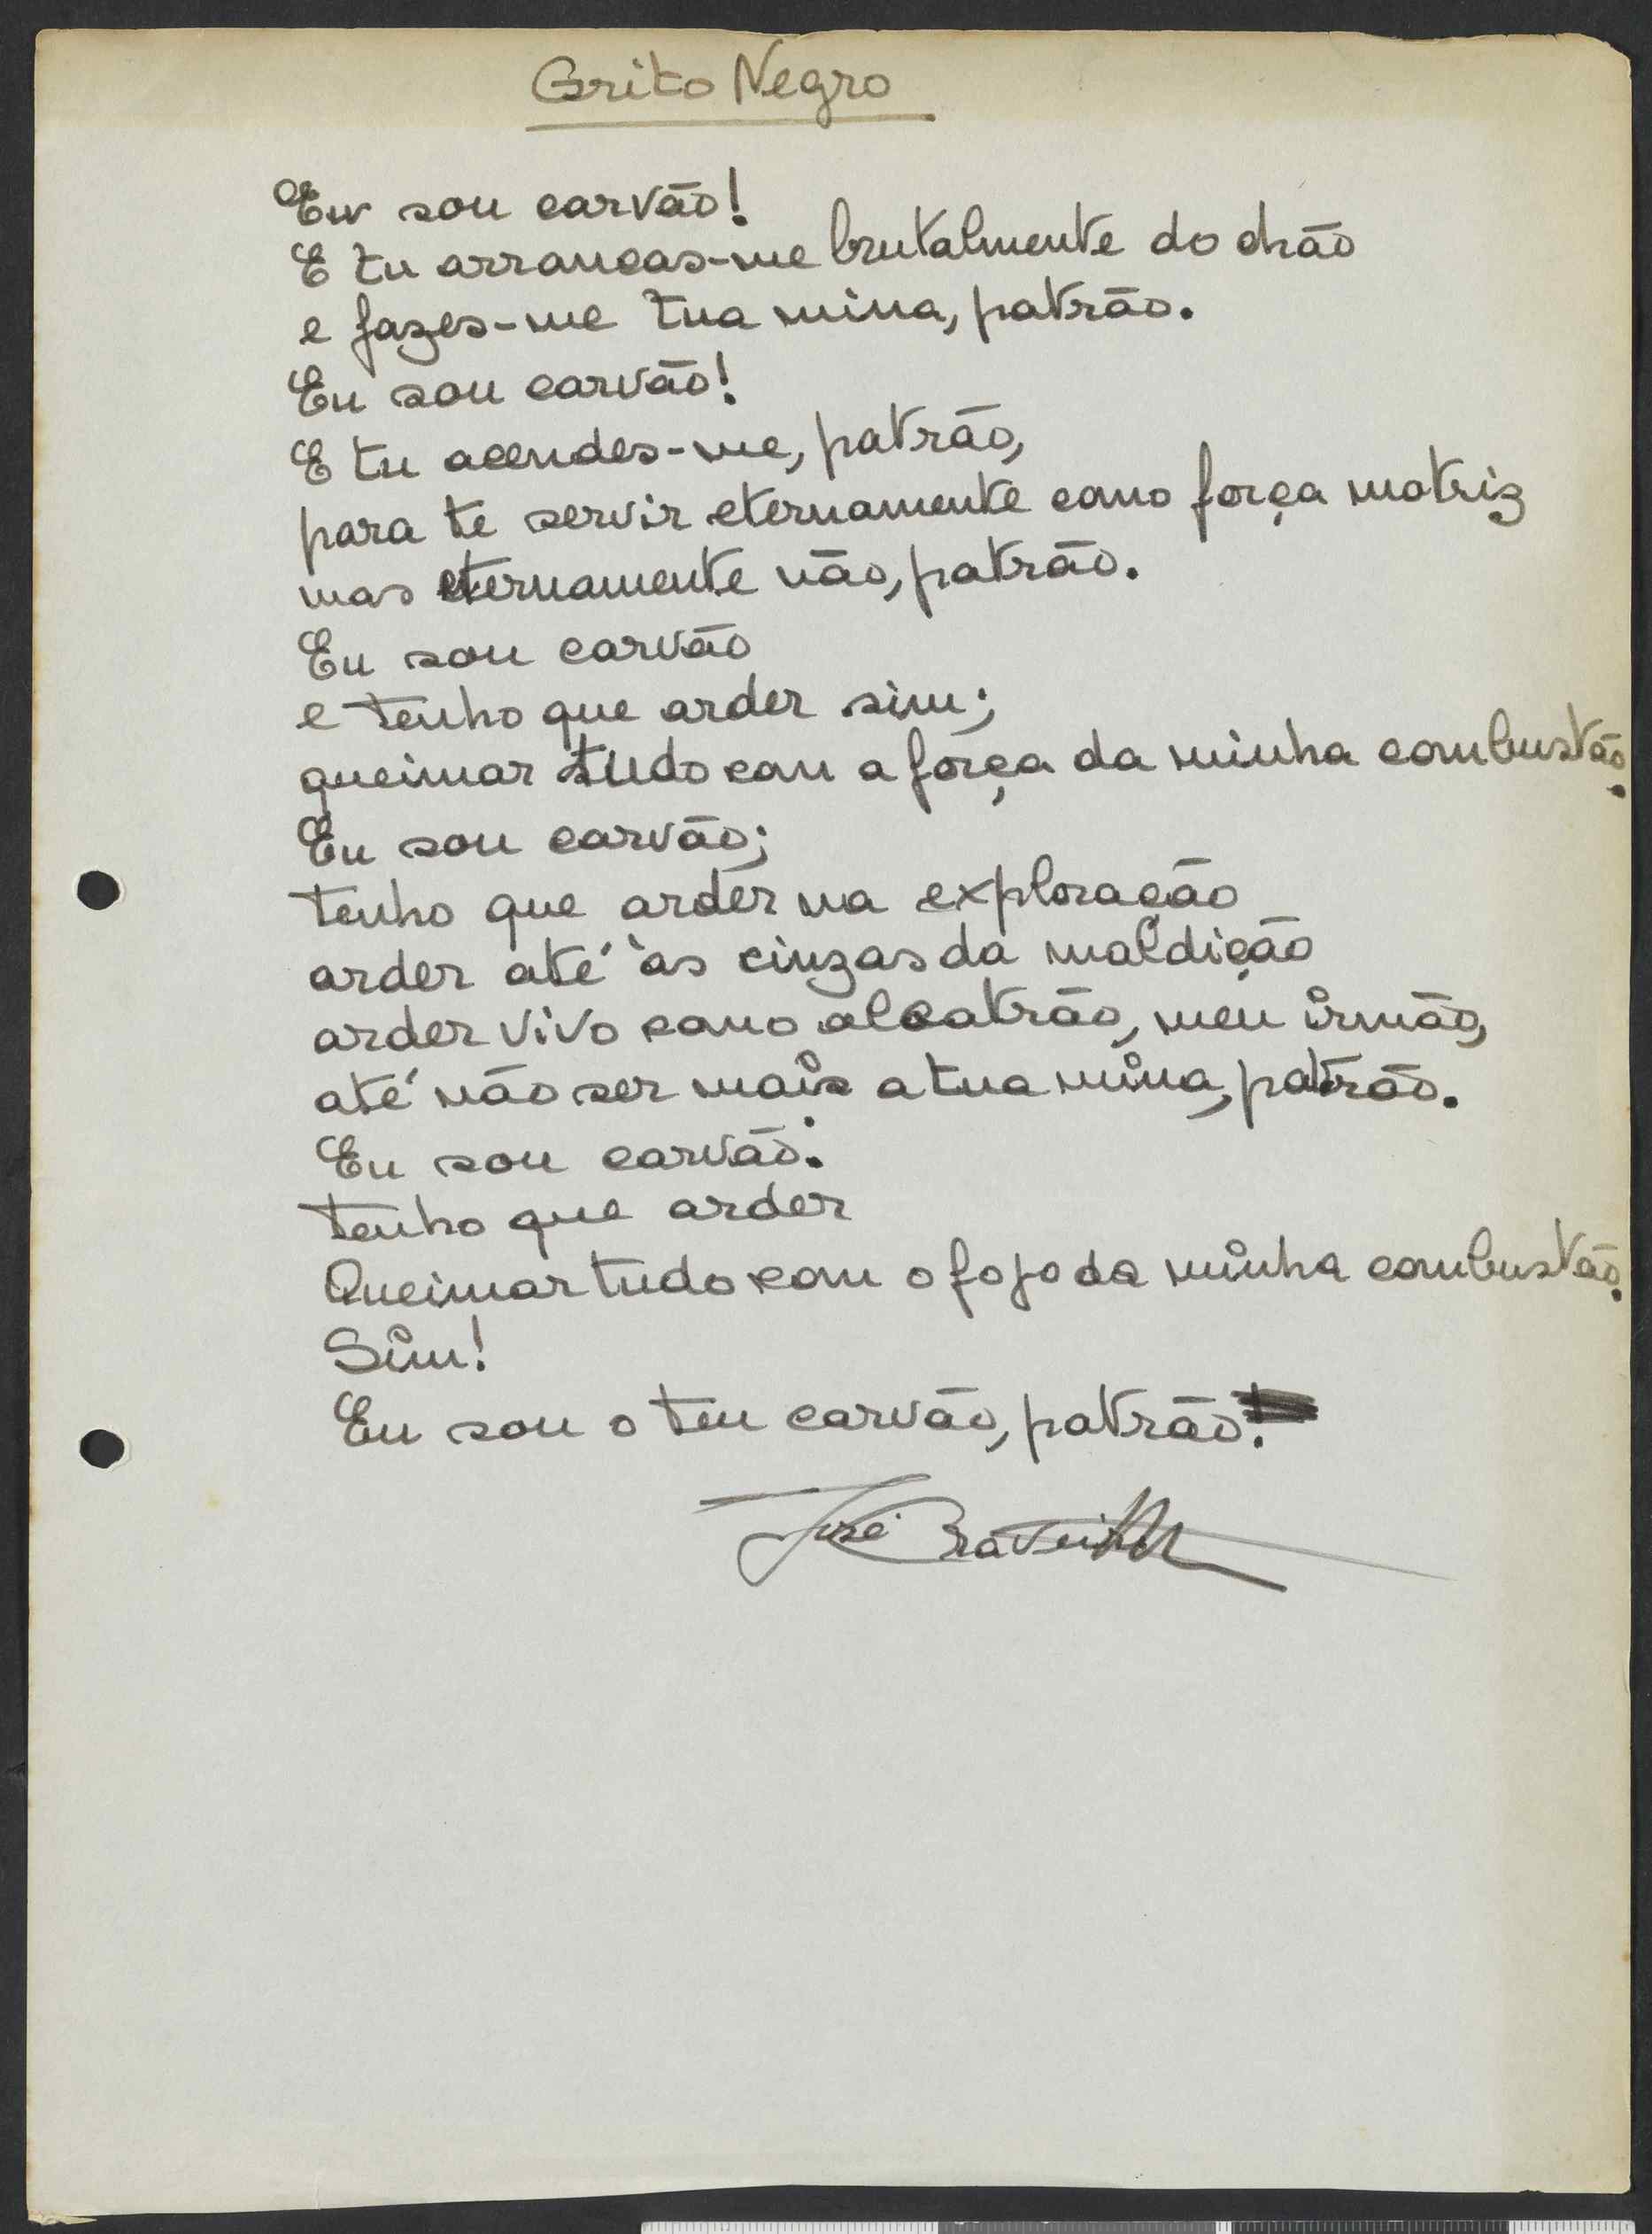 Grito Negro
Eu sou carvão!
E tu arrancas-me brutalmente do chão
e fazes-me tua mina, patrão.
Eu sou carvão!
E tu acendes-me, patrão,
para te servir eternamente como força motriz
mas eternamente não, patrão.
Eu sou carvão
e tenho que arder sim;
queimar tudo com a força da minha combustão.
Eu sou carvão;
tenho que arder na exploração
arder até às cinzas da maldição
arder vivo como alcatrão, meu irmão,
até não ser mais a tua mina, patrão.
Eu sou carvão.
tenho que arder
Queimar tudo com o fogo da minha combustão.
Sim!
Eu sou o teu carvão, patrão!
José Craveirinha